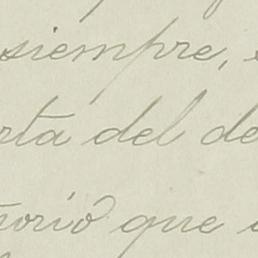 siempre,
rta del de
norio que